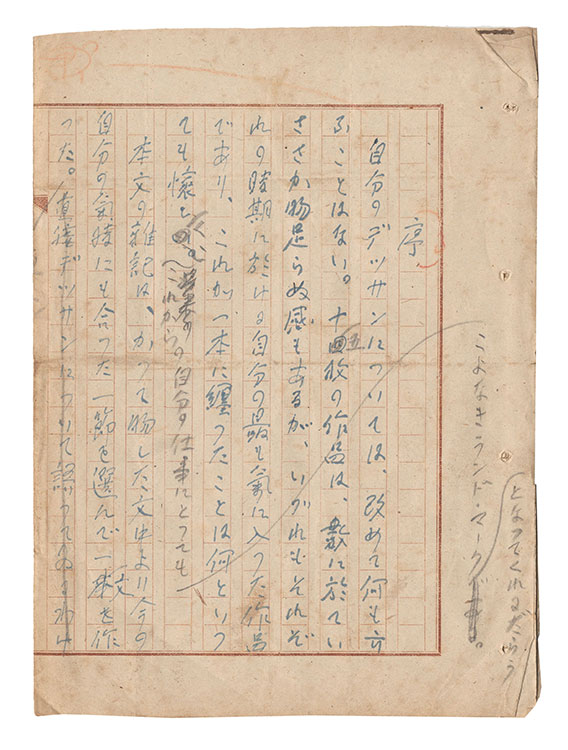 序
自分のデッサンについては、改めて何も言
ふことはない。十五枚の作品は、数に於てい
ささか物足らぬ感もあるが、いづれもそれぞ
れの時期に於ける自分の最も氣に入つた作品
であり、これが一本に纏つたことは何といつ
ても懐し
これからの自分の仕事にとつても
こよなきランド・マーク
となつてくれるだらう
。
本文の雑記は、かつて物した文中より今の
自分の氣持にも合つた一節を選んで一文を作
つた。直接デッサンについて語つてゐるわけ